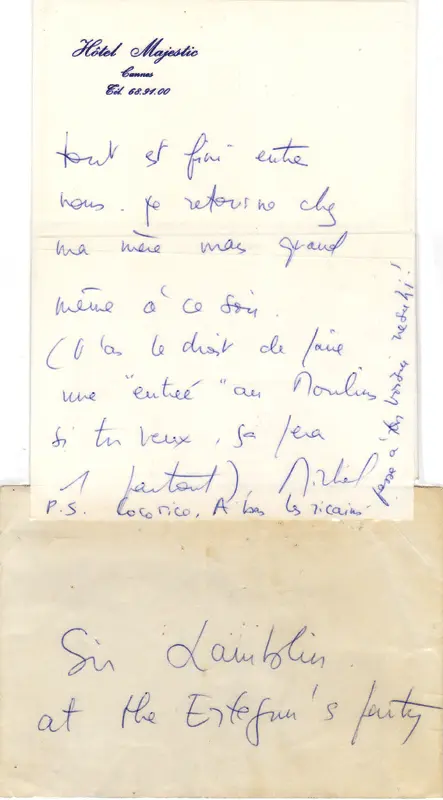 Hôtel Majestic
Cannes
Tél. 68.91.00
tout est fini entre
nous. je retourne chez
ma mère mais quand
même à ce soir.
(t'as le droit de faire
une "entrée" au Moulins
si tu veux, ça fera
1 partout) Michel
P.S. Cocorico. A bas les ricains
passe à ton voisin
Sir Lamblin
at the Ertegun's party